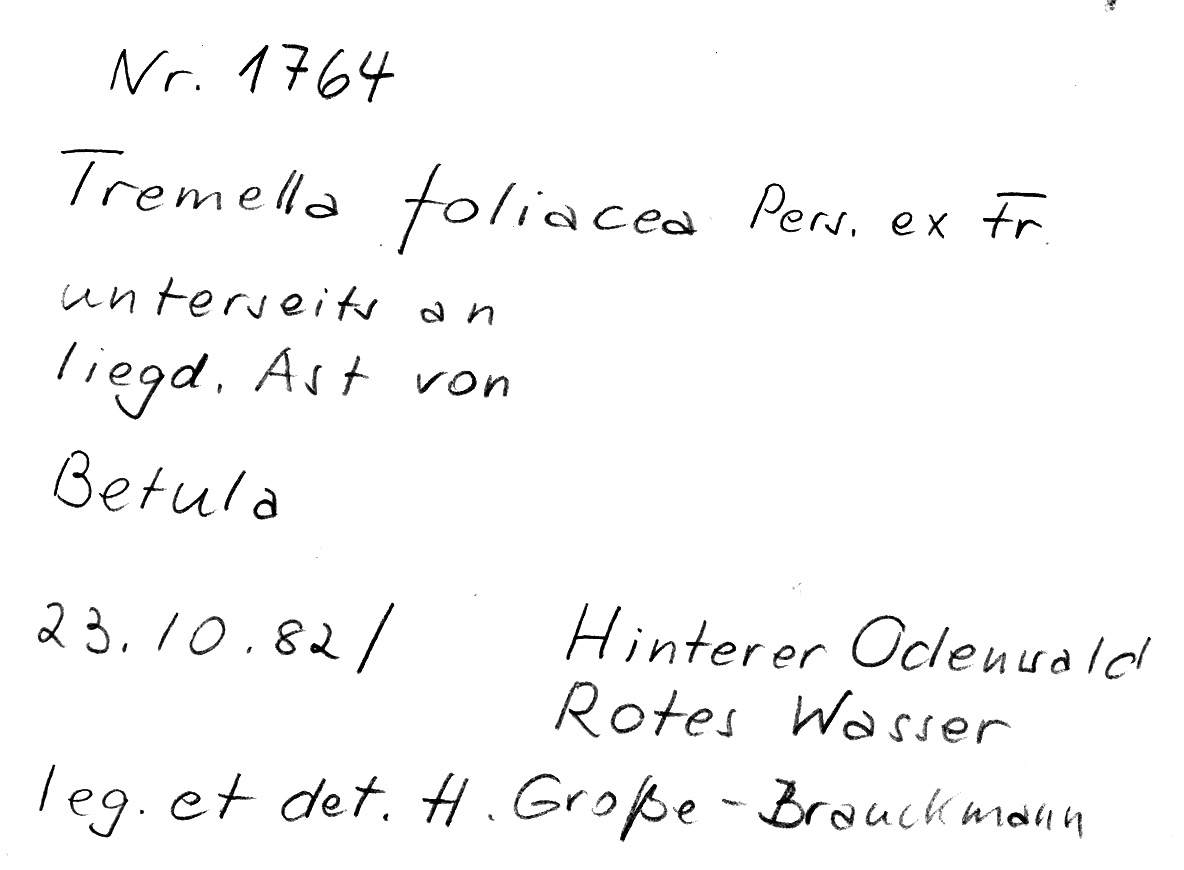 Nr. 1764
Tremella foliacea Pers. ex Fr.
unterseits an
liegd. Ast von
Betula
23.10.82/ Hinterer Odenwald
Rotes Wasser
leg. et det. H. Große-Brauckmann